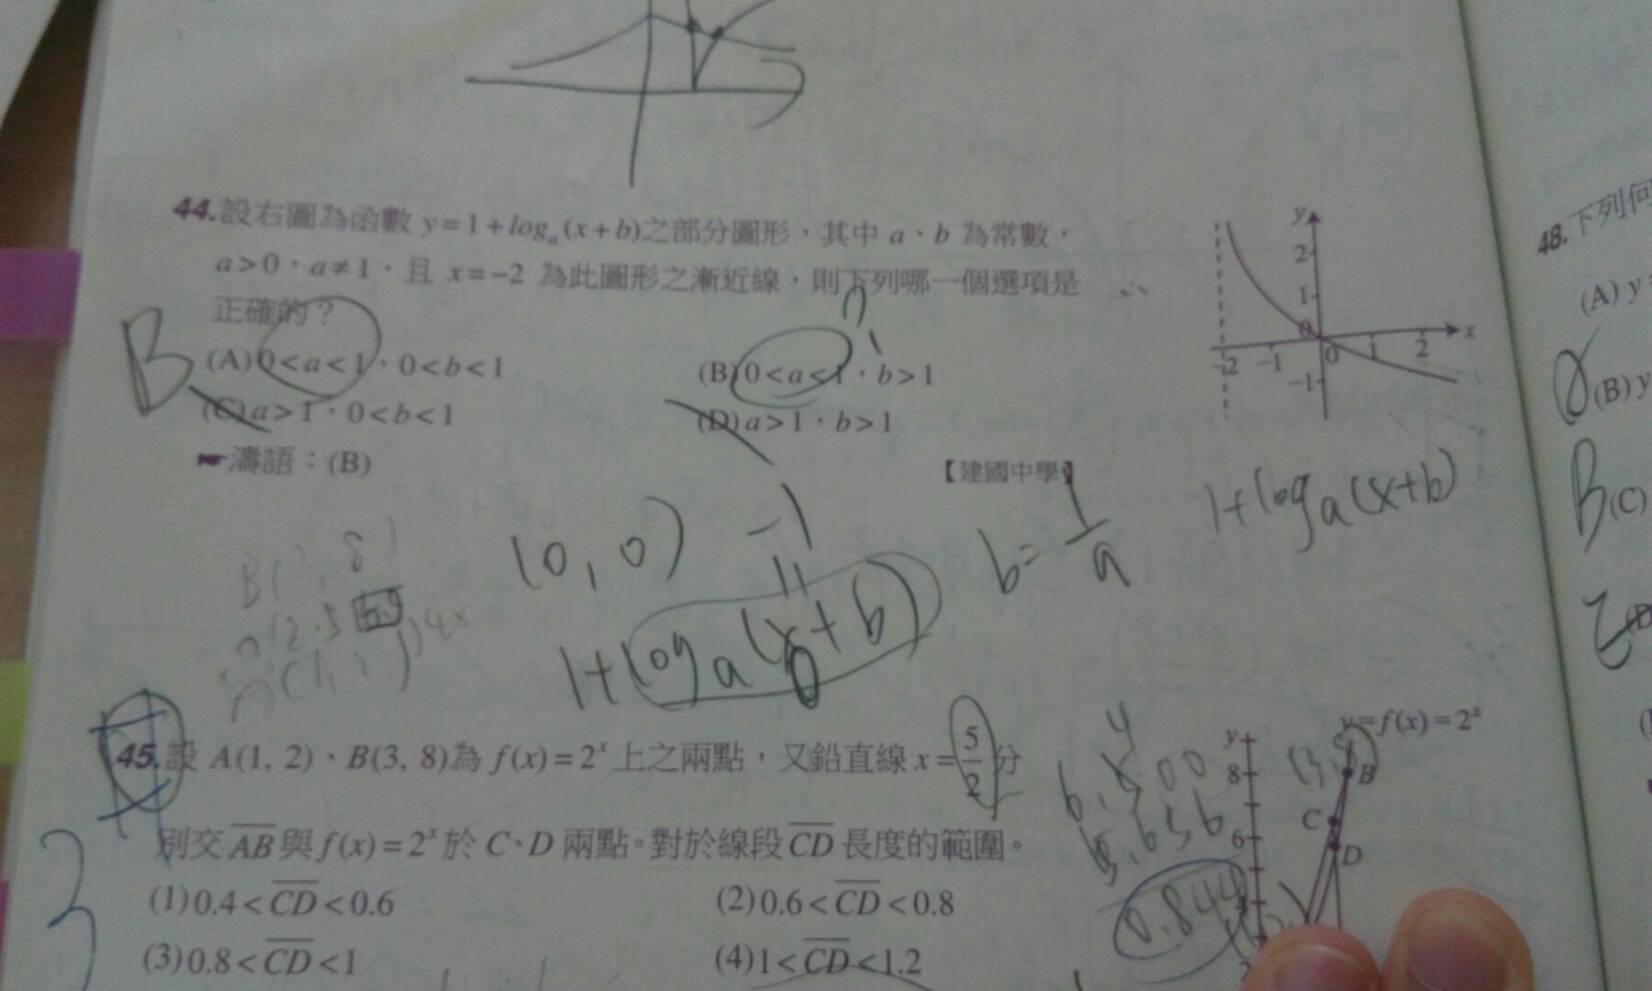 44.設右圖為函數 y=1+logₐ(x+b)之部分圖形，其中 a、b 為常數，
a>0，a≠1，且 x=-2 為此圖形之漸近線，則下列哪一個選項是
正確的？
B
(A) 0<a<1，0<b<1
(B) 0<a<1，b>1
(C) a>1，0<b<1
(D) a>1，b>1
濤語：(B)
【建國中學】
y
2
1
0
-2 -1 0 1 2 x
-1
(0,0)
-1
1+logₐ(x+b)
0
b=1/a
1+logₐ(x+b)
45.設 A(1, 2)、B(3, 8)為 f(x)=2ˣ 上之兩點，又鉛直線 x=5/2 分
別交 AB 與 f(x)=2ˣ 於 C、D 兩點。對於線段 CD 長度的範圍。
(1) 0.4<CD<0.6
(2) 0.6<CD<0.8
(3) 0.8<CD<1
(4) 1<CD<1.2
3
y=f(x)=2ˣ
y
8
6
B
C
D
0.844
48.下列何
(A) y
(B) y
B
(C)